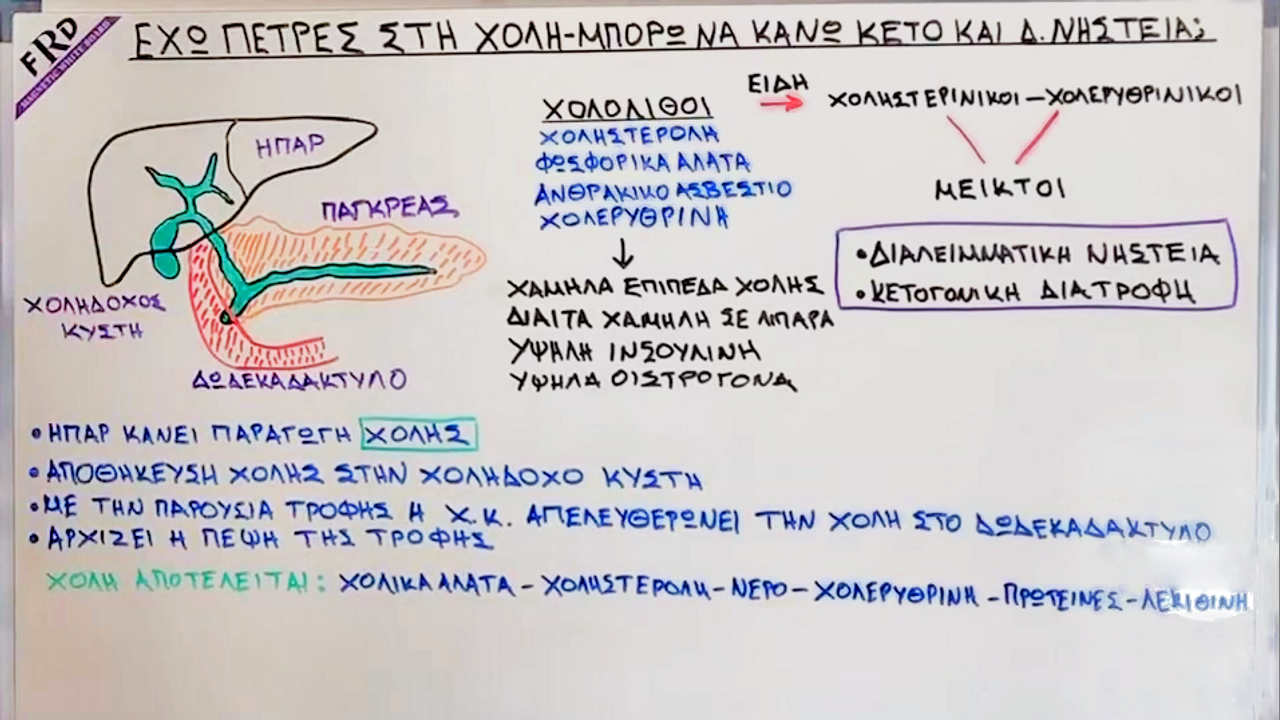 FRD
MAGNETIC WHITE BOARD
ΕΧΩ ΠΕΤΡΕΣ ΣΤΗ ΧΟΛΗ-ΜΠΟΡΩ ΝΑ ΚΑΝΩ ΚΕΤΟ ΚΑΙ Δ. ΝΗΣΤΕΙΑ;
ΗΠΑΡ
ΠΑΓΚΡΕΑΣ
ΧΟΛΗΔΟΧΟΣ
ΚΥΣΤΗ
ΔΩΔΕΚΑΔΑΚΤΥΛΟ
ΧΟΛΟΛΙΘΟΙ
ΧΟΛΗΣΤΕΡΟΛΗ
ΦΩΣΦΟΡΙΚΑ ΑΛΑΤΑ
ΑΝΘΡΑΚΙΚΟ ΑΣΒΕΣΤΙΟ
ΧΟΛΕΡΥΘΡΙΝΗ
ΧΑΜΗΛΑ ΕΠΙΠΕΔΑ ΧΟΛΗΣ
ΔΙΑΙΤΑ ΧΑΜΗΛΗ ΣΕ ΛΙΠΑΡΑ
ΥΨΗΛΗ ΙΝΣΟΥΛΙΝΗ
ΥΨΗΛΑ ΟΙΣΤΡΟΓΟΝΑ
ΕΙΔΗ
ΧΟΛΗΣΤΕΡΙΝΙΚΟΙ - ΧΟΛΕΡΥΘΡΙΝΙΚΟΙ
ΜΕΙΚΤΟΙ
•ΔΙΑΛΕΙΜΜΑΤΙΚΗ ΝΗΣΤΕΙΑ
•ΚΕΤΟΓΟΝΙΚΗ ΔΙΑΤΡΟΦΗ
•ΗΠΑΡ ΚΑΝΕΙ ΠΑΡΑΓΩΓΗ ΧΟΛΗΣ
•ΑΠΟΘΗΚΕΥΣΗ ΧΟΛΗΣ ΣΤΗΝ ΧΟΛΗΔΟΧΟ ΚΥΣΤΗ
•ΜΕ ΤΗΝ ΠΑΡΟΥΣΙΑ ΤΡΟΦΗΣ Η Χ.Κ. ΑΠΕΛΕΥΘΕΡΩΝΕΙ ΤΗΝ ΧΟΛΗ ΣΤΟ ΔΩΔΕΚΑΔΑΚΤΥΛΟ
•ΑΡΧΙΖΕΙ Η ΠΕΨΗ ΤΗΣ ΤΡΟΦΗΣ
ΧΟΛΗ ΑΠΟΤΕΛΕΙΤΑΙ: ΧΟΛΙΚΑ ΑΛΑΤΑ - ΧΟΛΗΣΤΕΡΟΛΗ - ΝΕΡΟ - ΧΟΛΕΡΥΘΡΙΝΗ - ΠΡΩΤΕΙΝΕΣ - ΛΕΚΙΘΙΝΗ